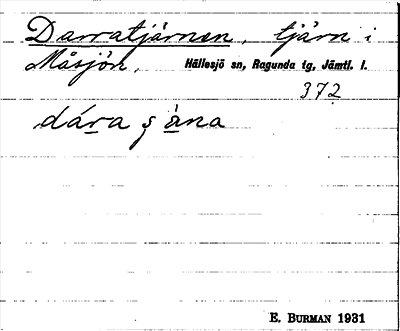 Darratjärnen, tjärn i
Måsjön, Hällesjö sn, Ragunda tg, Jämtl. l.
372
dára
E. BURMAN 1931